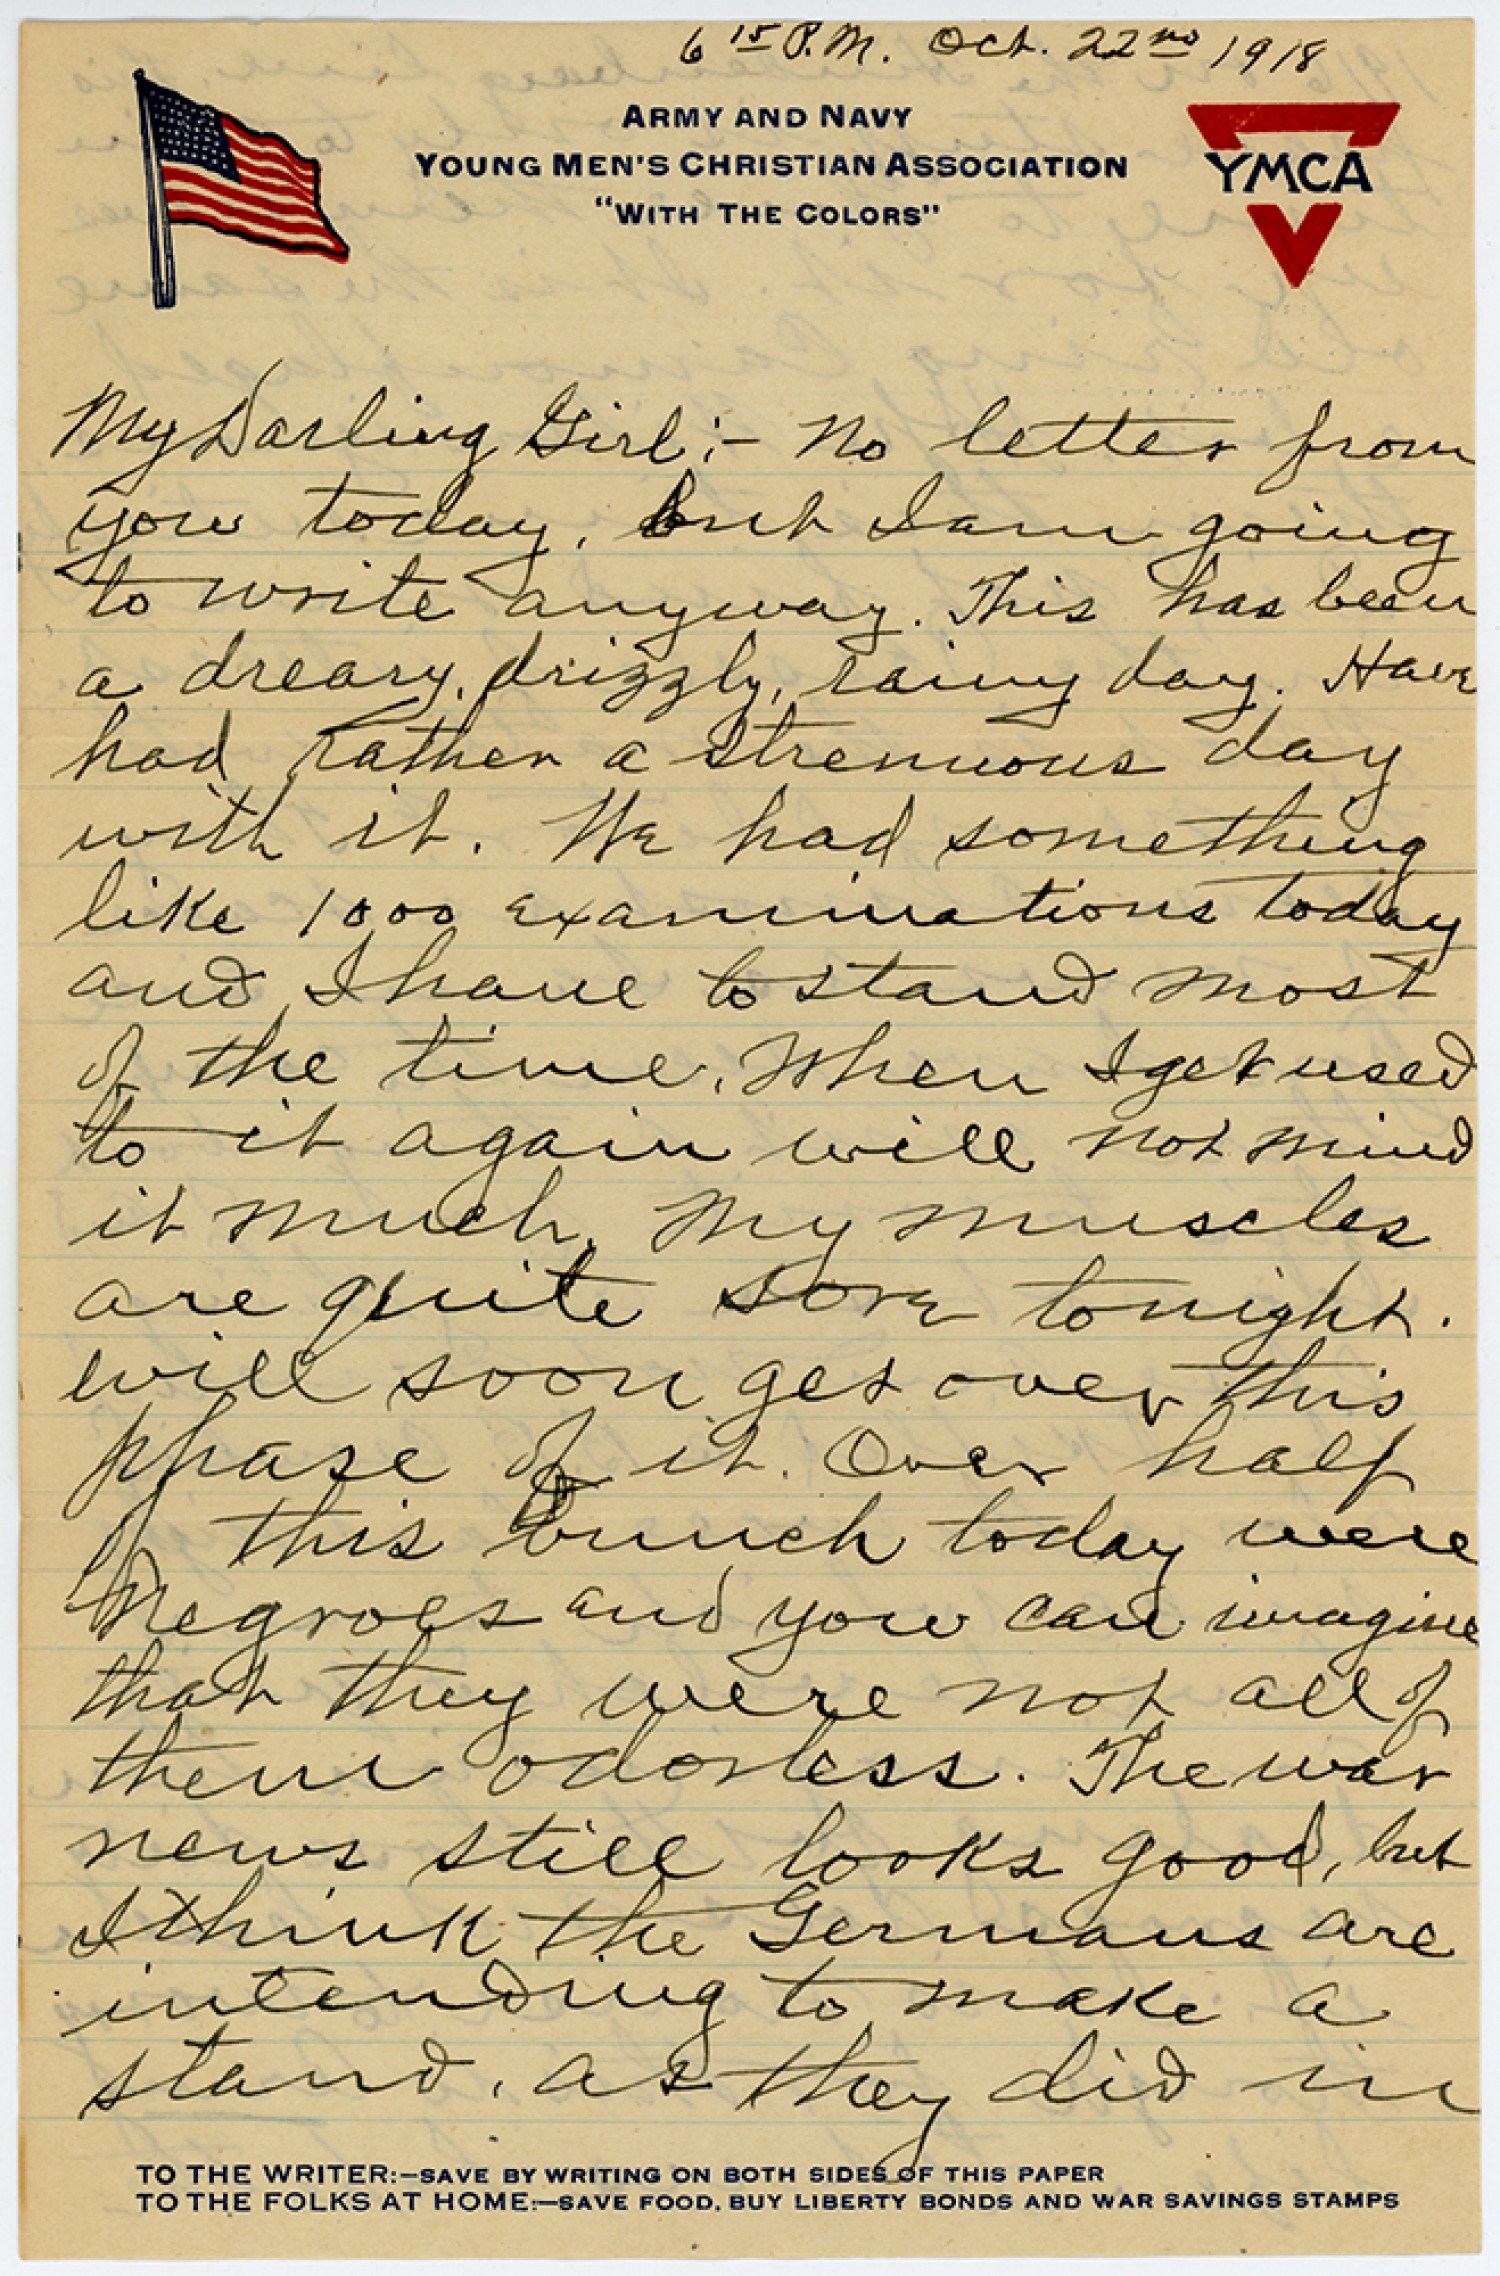 6 15 P.M. Oct. 22nd 1918
ARMY AND NAVY
YOUNG MEN'S CHRISTIAN ASSOCIATION
"WITH THE COLORS"
YMCA
My Darling Girl:- No letter from
you today, but I am going
to write anyway. This has been
a dreary, drizzly, rainy day. Have
had rather a strenuous day
with it. We had something
like 1000 examinations today
and I have to stand most
of the time. When I get used
to it again will not mind
it much. My muscles
are quite sore tonight.
will soon get over this
phase of it. Over half
of this bunch today were
Negroes and you can imagine
that they were not all of
them odorless. The war
news still looks good, but
I think the Germans are
intending to make a
stand, as they did in
TO THE WRITER:—SAVE BY WRITING ON BOTH SIDES OF THIS PAPER
TO THE FOLKS AT HOME:—SAVE FOOD, BUY LIBERTY BONDS AND WAR SAVINGS STAMPS